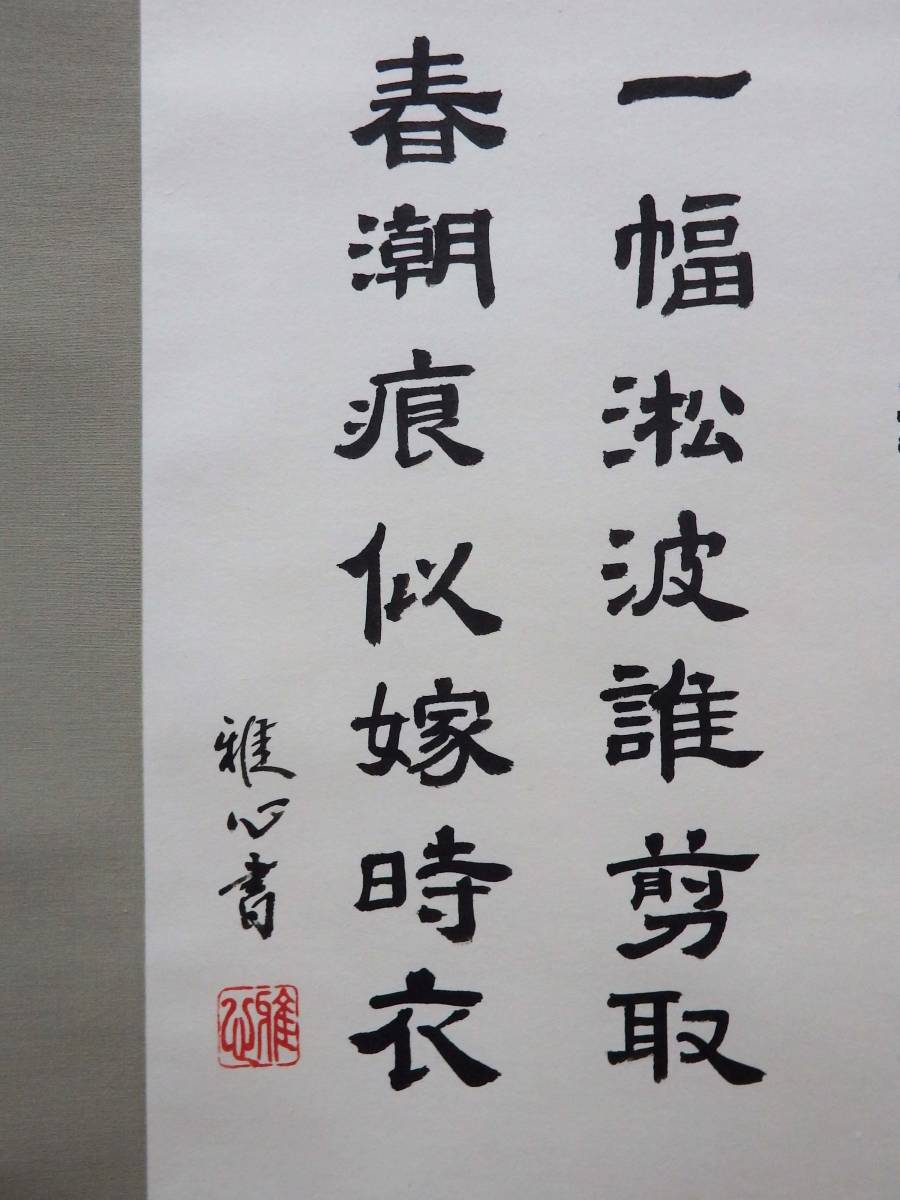 一幅淞波誰剪取
春潮痕似嫁時衣
雅心書
雅心